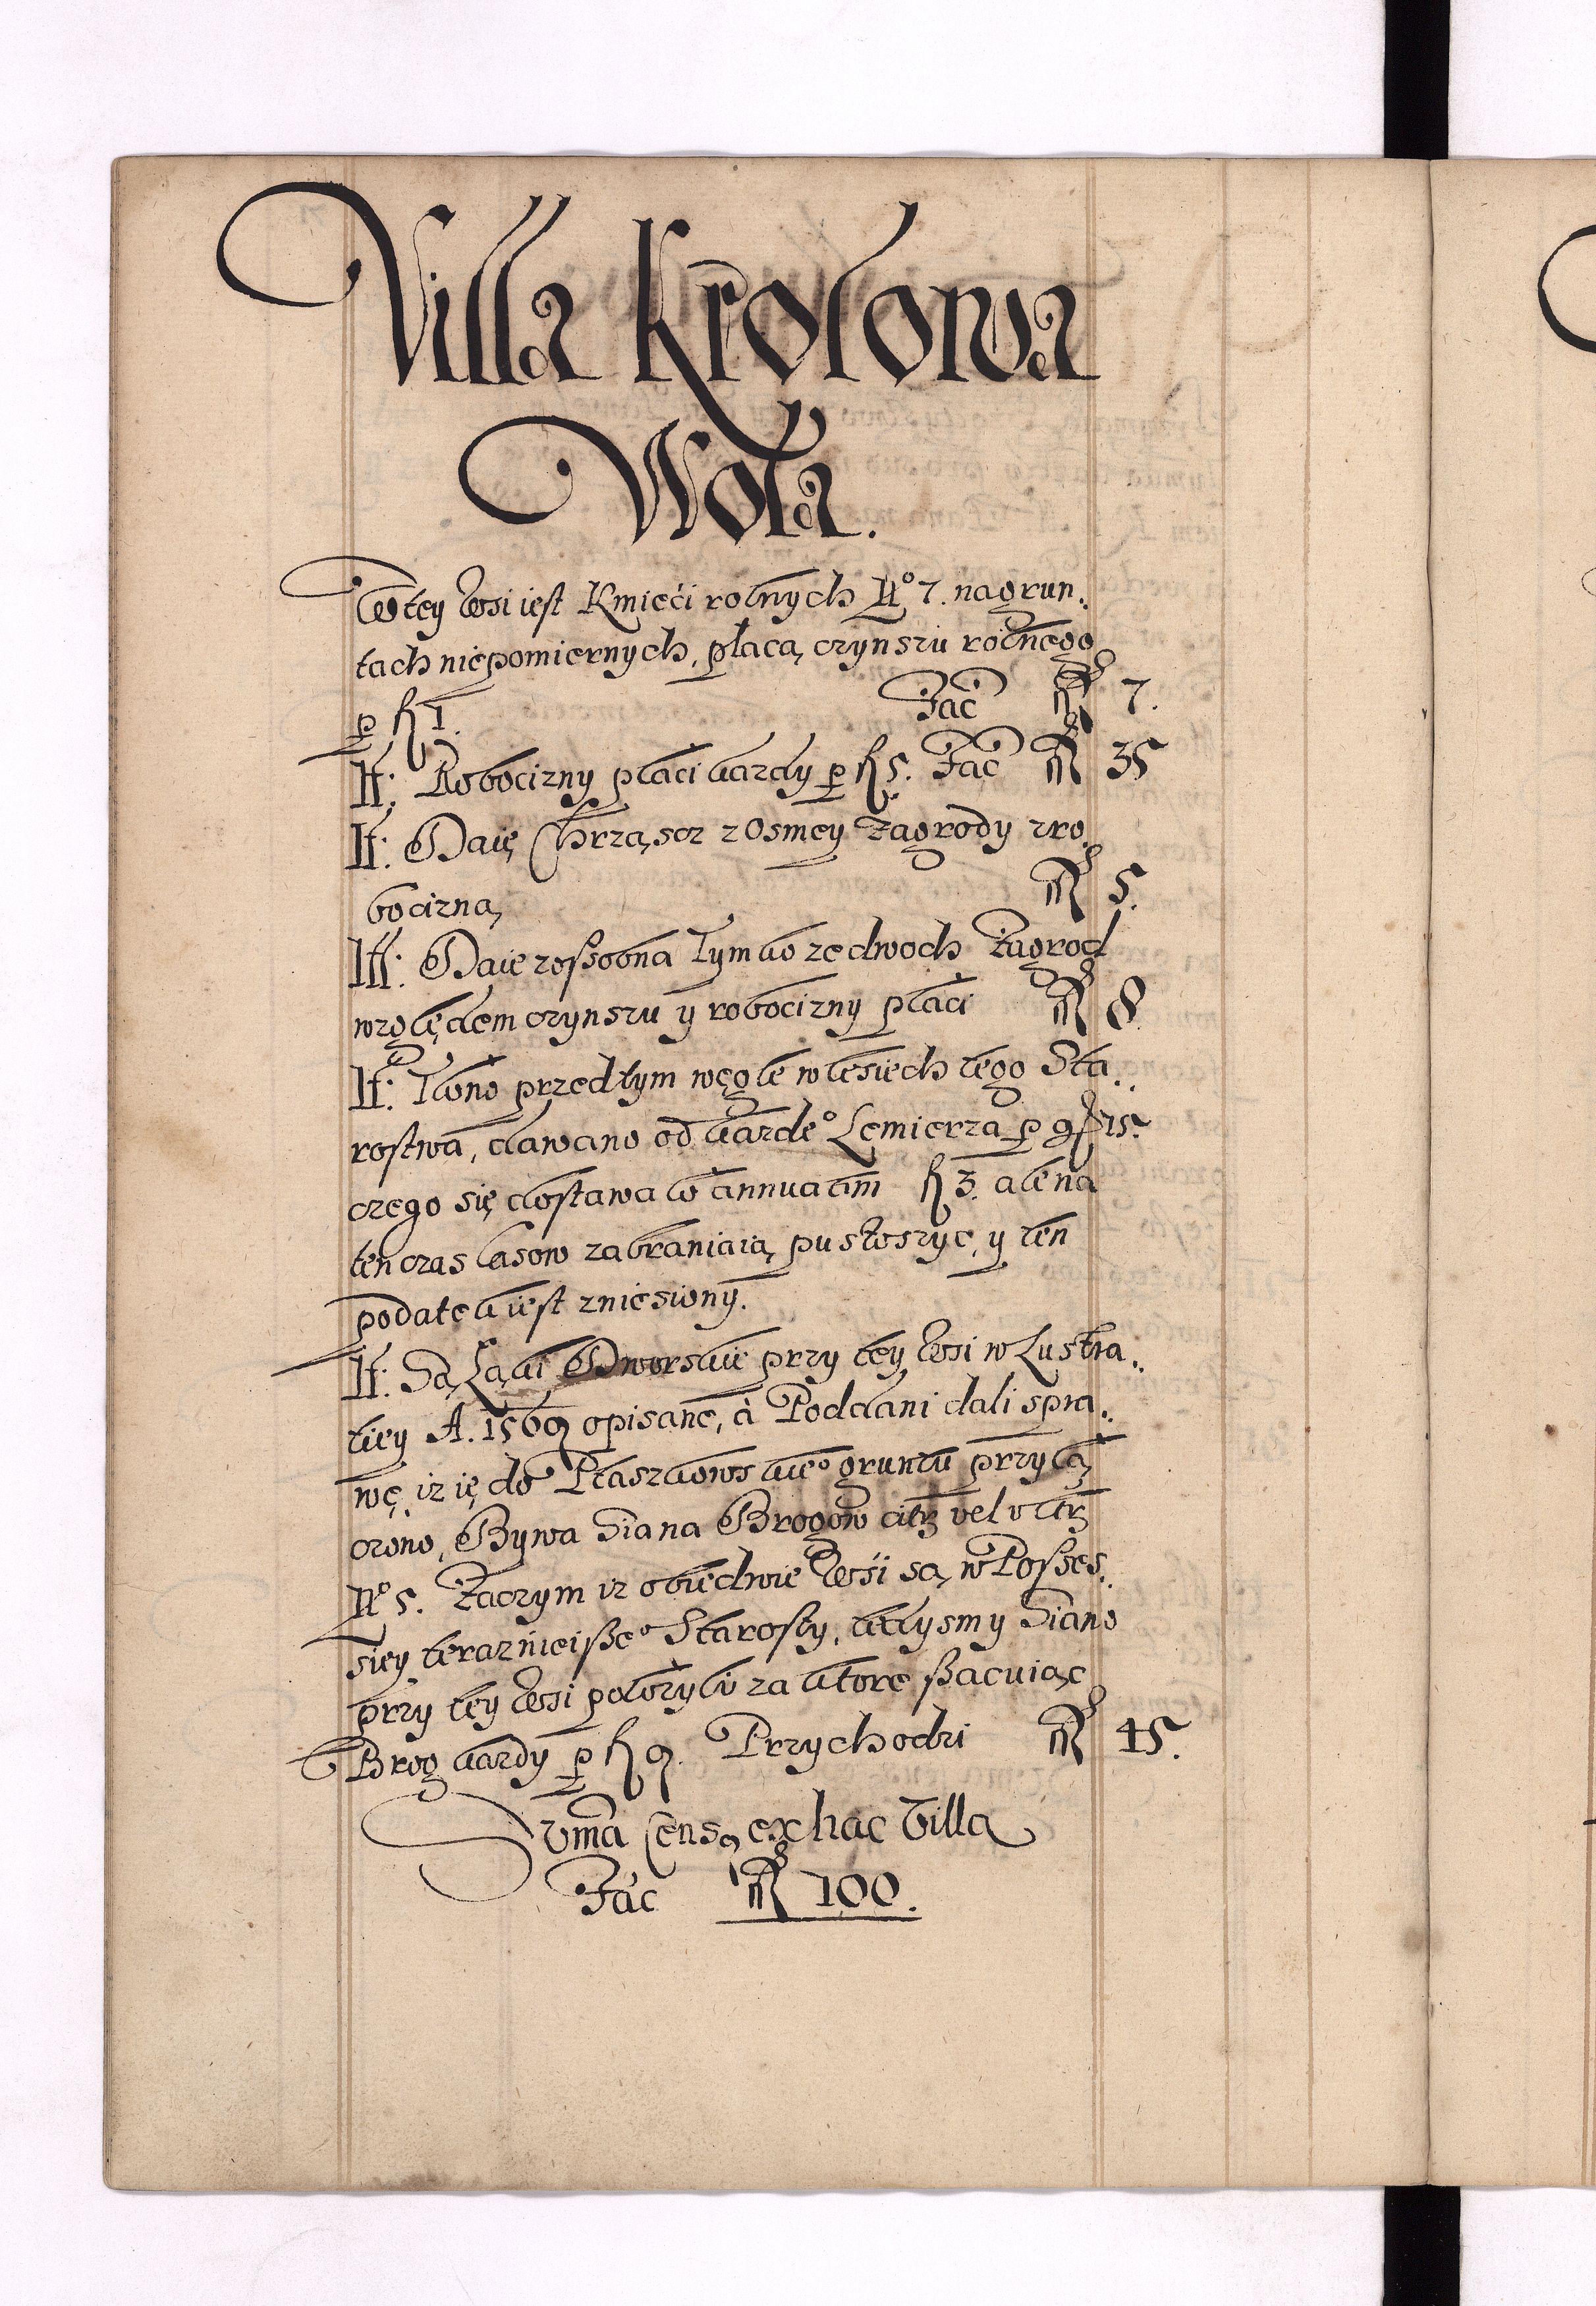 Villa Krolowa
Wola.
W tey wsi iest Kmieci rolnych No 7. na grun:
tach niepomiernych, płacą czynszu rocznego
p fl 1. Fac fl 7.
It: Robocizny płaci kazdy p fl 5. Fac fl 35
It: Daie Chrząscz z Osmey Zagrody z ro
bocizną fl 5.
It: Daie zossobna Tymko ze dwoch Zagrod
względem czynszu y robocizny płaci fl 8
It: Iż ono przed tym węgle w lesiech tego Sta:
rostwa, dawano od kazdeo Lemierza p gr 15.
czego się dostawało annuatim fl 3. ale na
ten czas lasow zabraniaią pustoszyc, y ten
podatek iest zniesiony.
It: Są Łąki Dworskie przy tey wsi w Lustra:
tiey A. 1569 opisane, à Poddani dali spra:
wę, iz ię do Ptaszkowskieo gruntu przyłą
czono, Bywa Siana Brogow citr vel vltr
No 5. Zaczym iz obiedwie wsi są w Posses:
siey teraznieisseo Starosty, tedysmy Siano
przy tey wsi położyli za ktore szacuiąc
Brog kazdy p fl 9. Przychodzi fl 45.
Summa Census ex hac Villa
Fac fl 100.